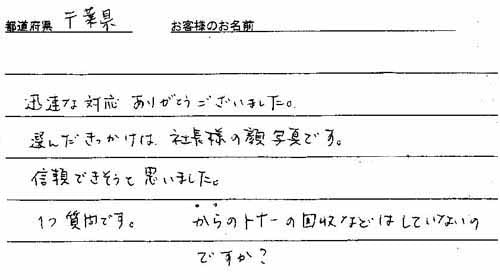 都道府県 千葉県 お客様のお名前
迅速な対応 ありがとうございました。
選んだきっかけは、社長様の顔写真です。
信頼できそうと思いました。
1つ質問です。 からのトナーの回収などはしていないの
ですか?